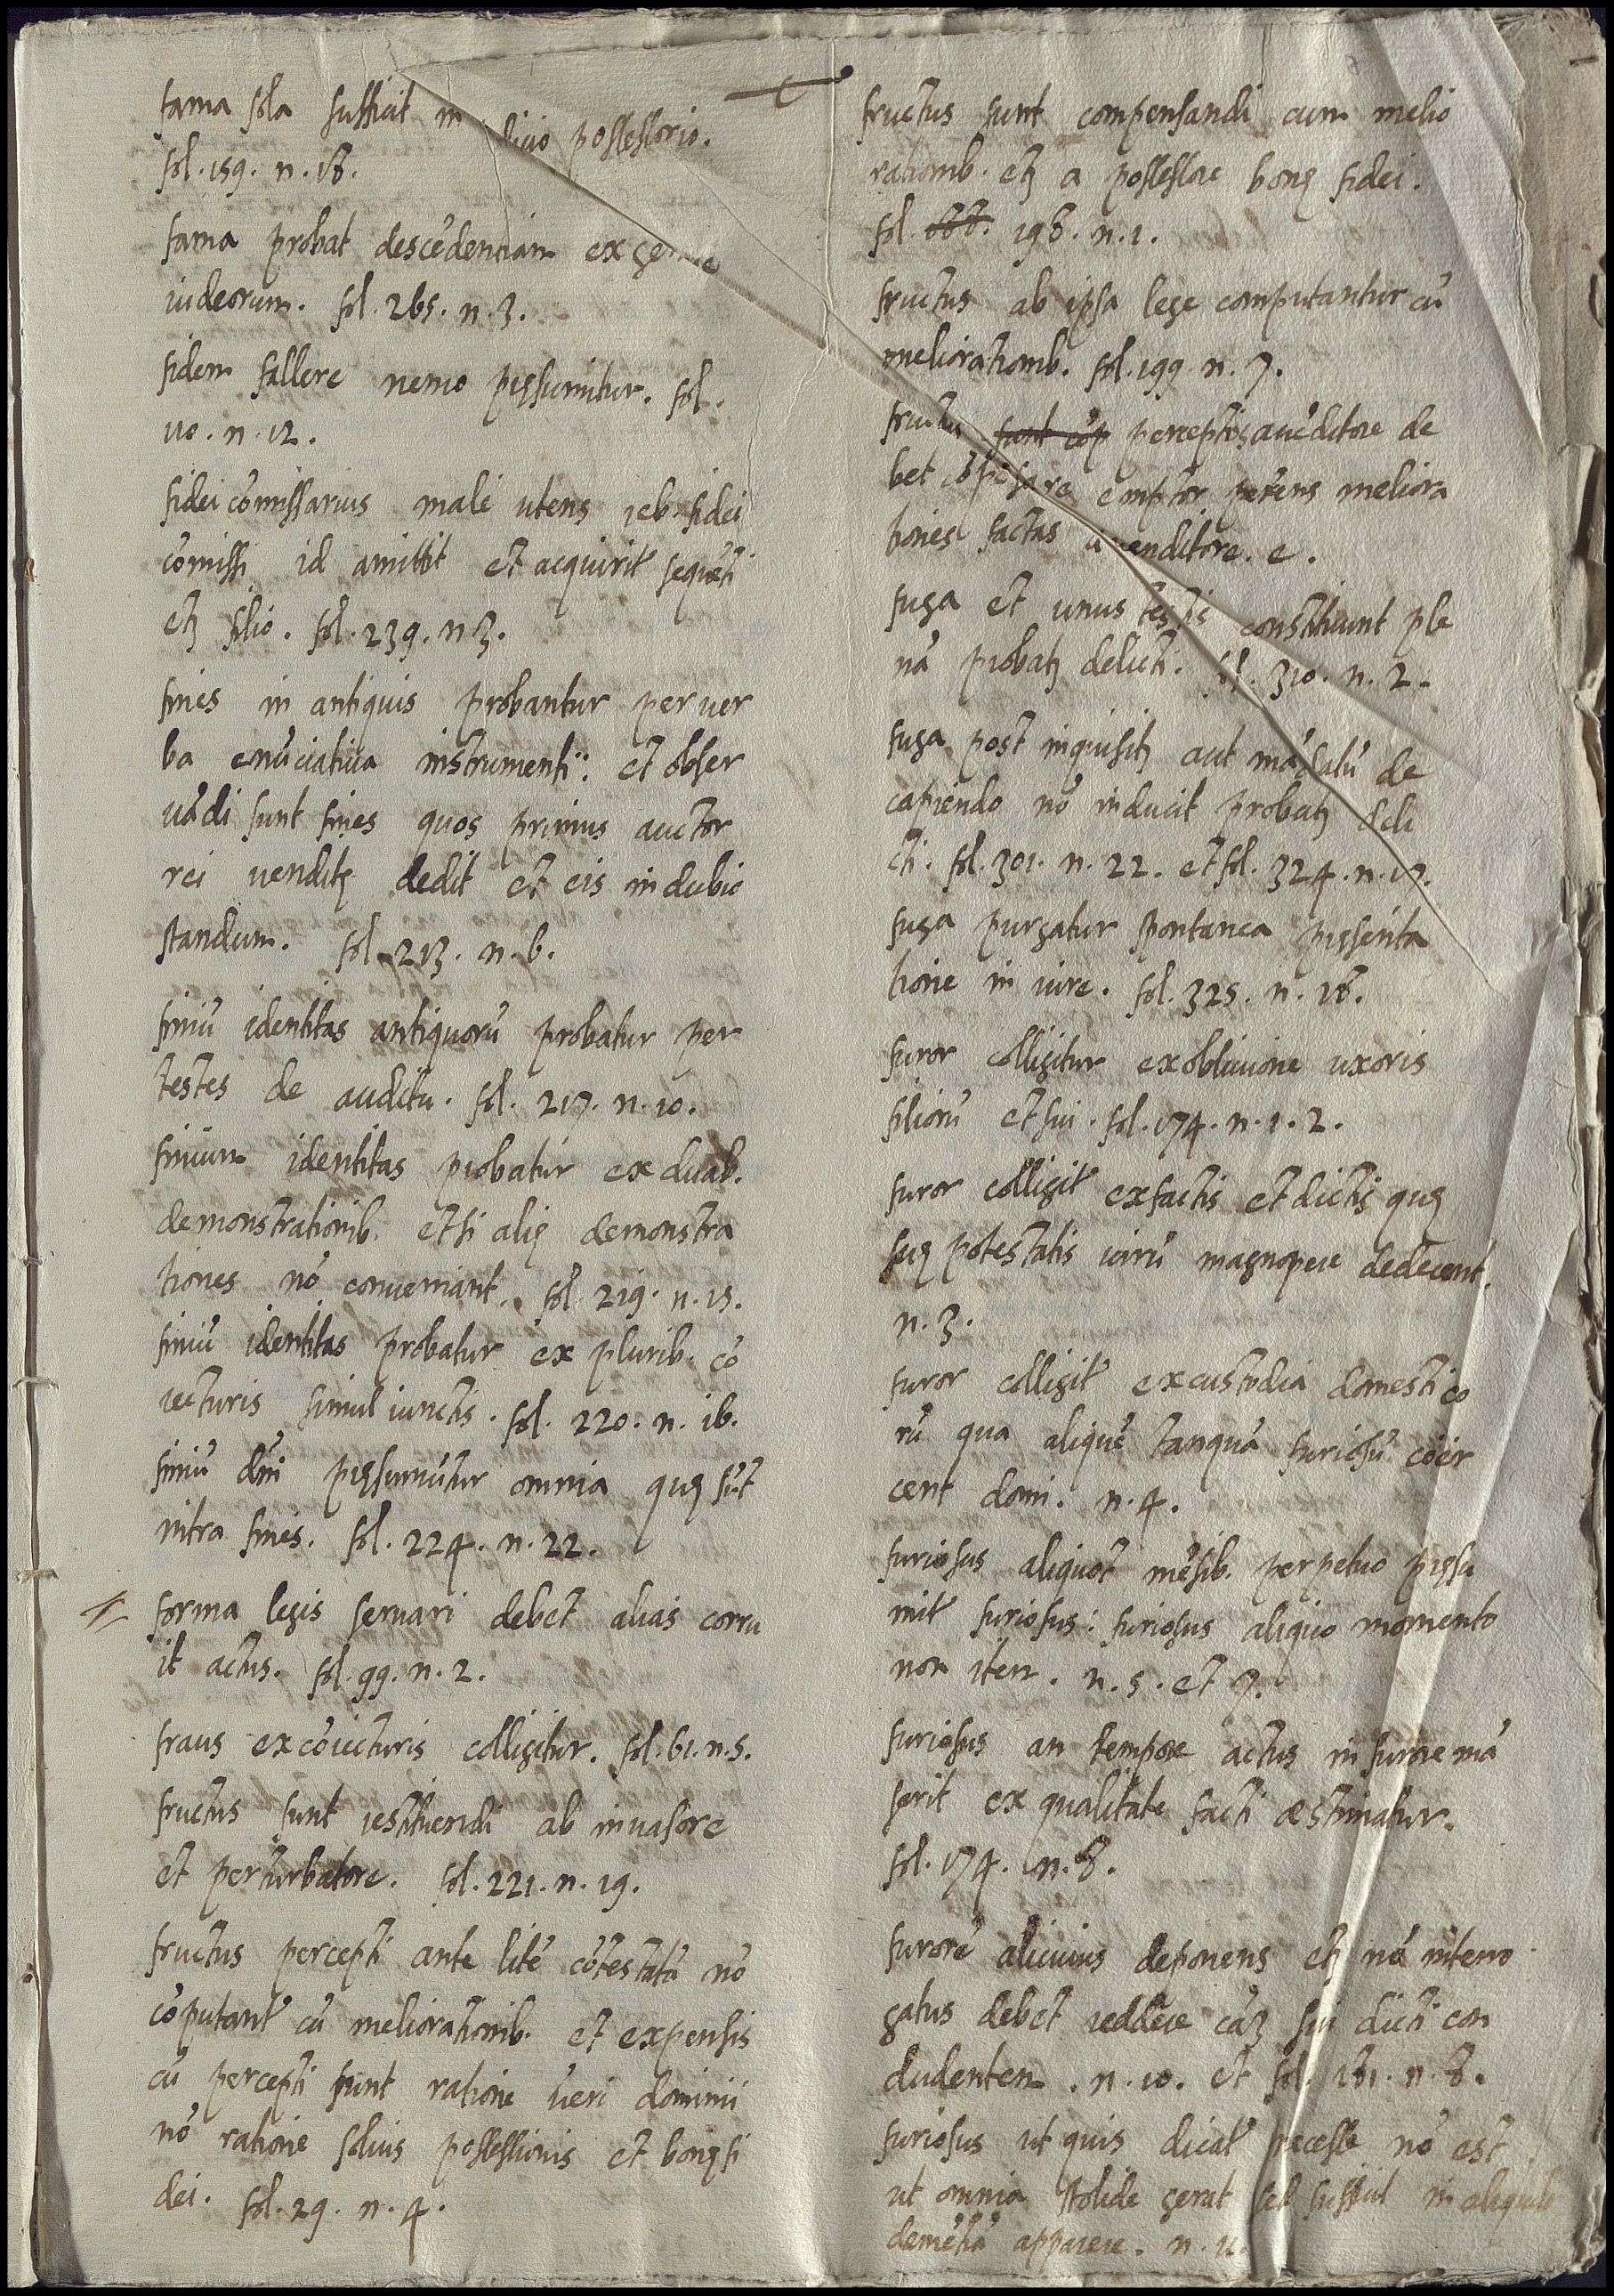 fama sola sufficit in dicio possessorio.
fol. 159. n. 18.
fama probat descēdentiam ex gente
iudeorum. fol. 265. n. 3.
fidem fallere nemo pręsumitur. fol.
110. n. 12.
fidei cōmissarius malè utens reb. fidei
cōmissi id amittit et acquirit sequēti
etȝ filio. fol. 239. n 3.
fines in antiquis probantur per ver
ba enūciativa instrumenti: et obser
vādi sunt fines quos primus auctor
rei venditę dedit et eis in dubio
standum. fol. 213. n. 6.
finiū identitas antiquorū probatur per
testes de auditu. fol. 217. n. 10.
finium identitas probatur ex duab.
demonstrationib. etsi alię demonstra
tiones nō conveniant. fol. 219. n. 15.
finiū identitas probatur ex plurib. cō
iecturis simul iunctis. fol. 220. n. 16.
finiū dñi pręsumūtur omnia quę sūt
intra fines. fol. 224. n. 22.
forma legis servari debet alias corru
it actus. fol. 99. n. 2.
fraus ex cōiecturis colligitur. fol. 61. n. 5.
fructus sunt restituendi ab invasore
et perturbatore. fol. 221. n. 19.
fructus percepti ante litē cōtestatā nō
cōputant cū meliorationib. et expensis
cū percepti sunt ratione veri dominii
nō ratione solius possessionis et bonę fi
dei. fol. 29. n. 4.
fructus sunt compensandi cum melio
rationib. etȝ a possessore bonę fidei.
fol. 198. n. 1.
fructus ab ipsa lege computantur cū
meliorationib. fol. 199. n. 7.
fructus sunt cōp perceptos a vēditore de
bet cōpēsare emptor petens meliora
tiones factas a venditore. e.
fuga et unus testis constituunt ple
nā probatȝ delicti. fol. 310. n. 2.
fuga post inquisitȝ aut mādatū de
capiendo nō inducit probatȝ deli
cti. fol. 301. n. 22. et fol. 324. n. 17.
fuga purgatur spontanea pręsenta
tione in iure. fol. 325. n. 18.
furor colligitur ex oblivione uxoris
filiorū et sui. fol. 174. n. 1. 2.
furor colligit ex factis et dictis quę
suę potestatis virū magnopere dedecent.
n. 3.
furor colligit ex custodia domestico
rū qua aliquē tanquā furiosū coer
cent domi. n. 4.
furiosus aliquot mēsib. perpetuo pręsu
mit furiosus: furiosus aliquo momento
non item. n. 5. et 7.
furiosus an tempore actus in furore mā
serit ex qualitate facti æstimatur.
fol. 174. n. 8.
furorē alicuius deponens etȝ nō interro
gatus debet reddere cāȝ sui dicti con
cludentem. n. 10. et fol. 181. n. 8.
furiosus ut quis dicat necesse nō est
ut omnia stolide gerat sed sufficit in aliquib
demētiā apparere. n. 11.